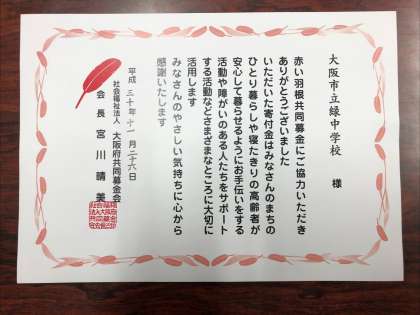 大阪市立緑中学校 様
赤い羽根共同募金にご協力いただき
ありがとうございました
いただいた寄付金はみなさんのまちの
ひとり暮らしや寝たきりの高齢者が
安心して暮らせるようにお手伝いをする
活動や障がいのある人たちをサポート
する活動などさまざまなところに大切に
活用します
みなさんのやさしい気持ちに心から
感謝いたします
平成 三十年 十一月 二十六日
社会福祉法人 大阪府共同募金会
会長 宮川晴美